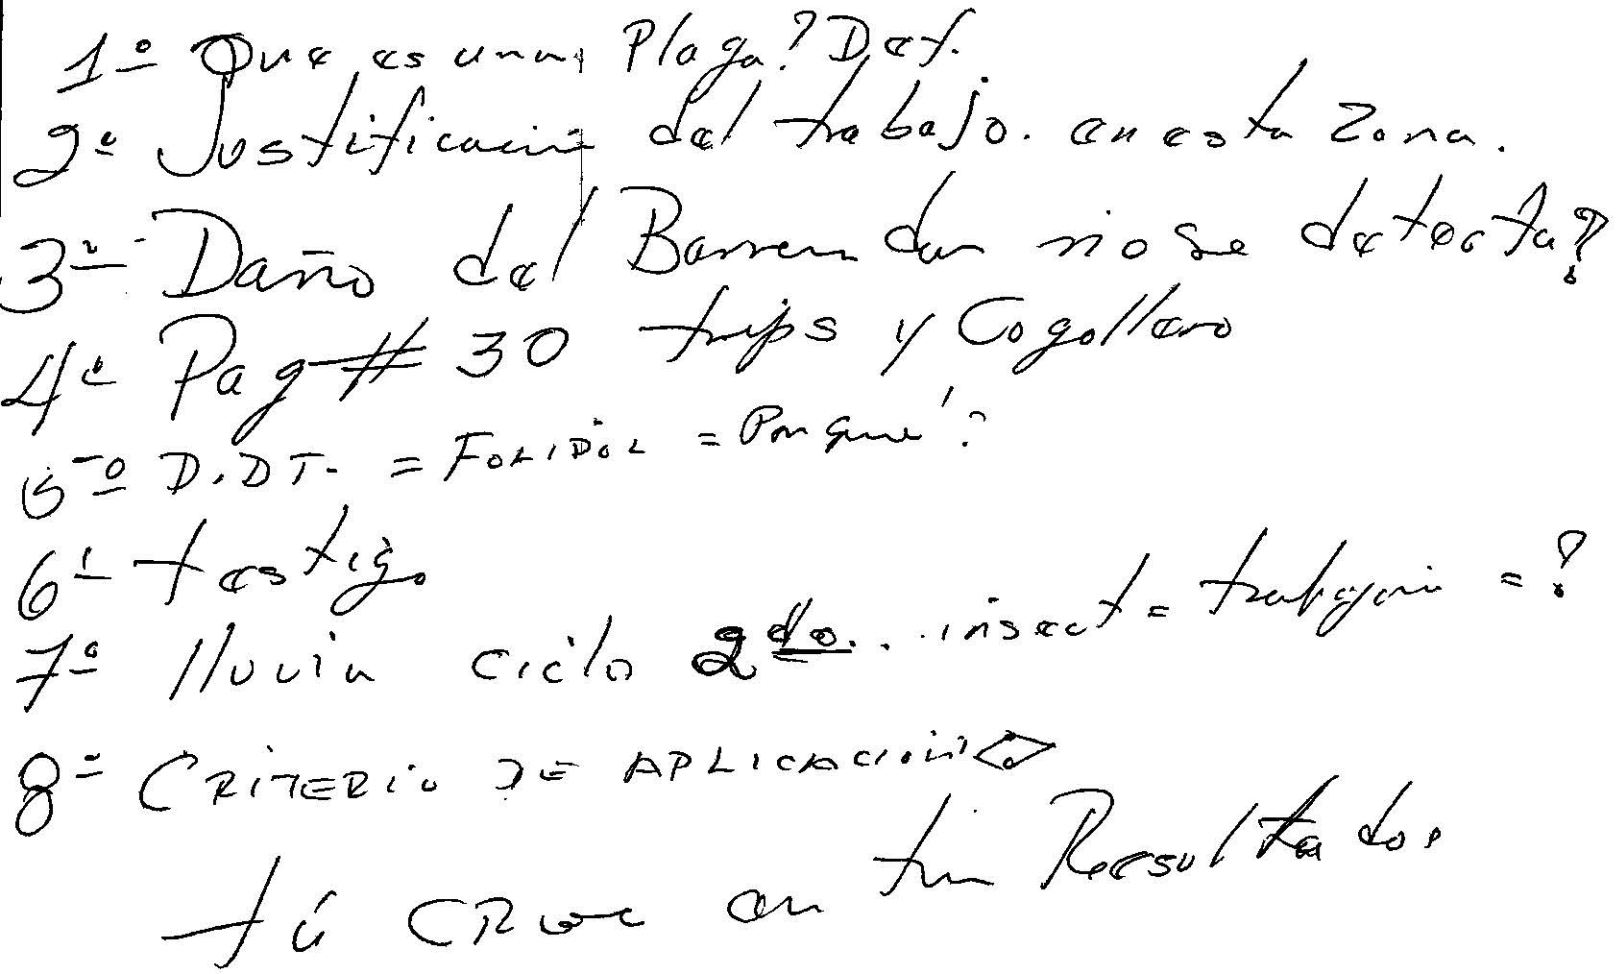 1º Que es una Plaga? Def.
2º Justificación del trabajo. en esta Zona.
3º - Daño del Barrenador no se detecta?
4º Pag # 30 trips y Cogollero
5º D.DT. = FOLIDOL = Porqué?
6º testigo
7º lluvia ciclo 2do.. insect = trabajaria = ?
8º CRITERIO DE APLICACION
tú CREE en tus Resultados